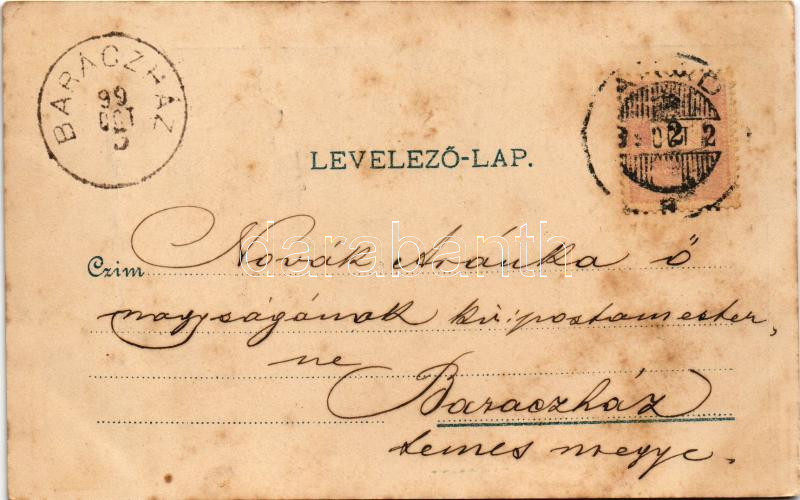 BARÁCZHÁZ
99
OCT
5
ARAD
OCT 2
2
LEVELEZŐ-LAP.
Czim Novák Aránka ő
nagyságának kir: postamester,
ne
Baraczház
temes megye.
darabanth